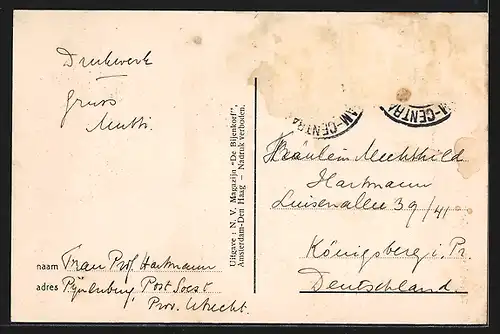 Drukwerk
Gruss
Mutti.
naam Frau Prof. Hartmann
adres Pijnenburg, Post Soest
Prov. Utrecht.
Uitgave: N. V. Magazijn "De Bijenkorf",
Amsterdam-Den Haag — Nadruk verboden.
AM-CENTRA
M-CENTRA
Fräulein Mechthild
Hartmann
Luisenallee 39/41
Königsberg i. Pr.
Deutschland.